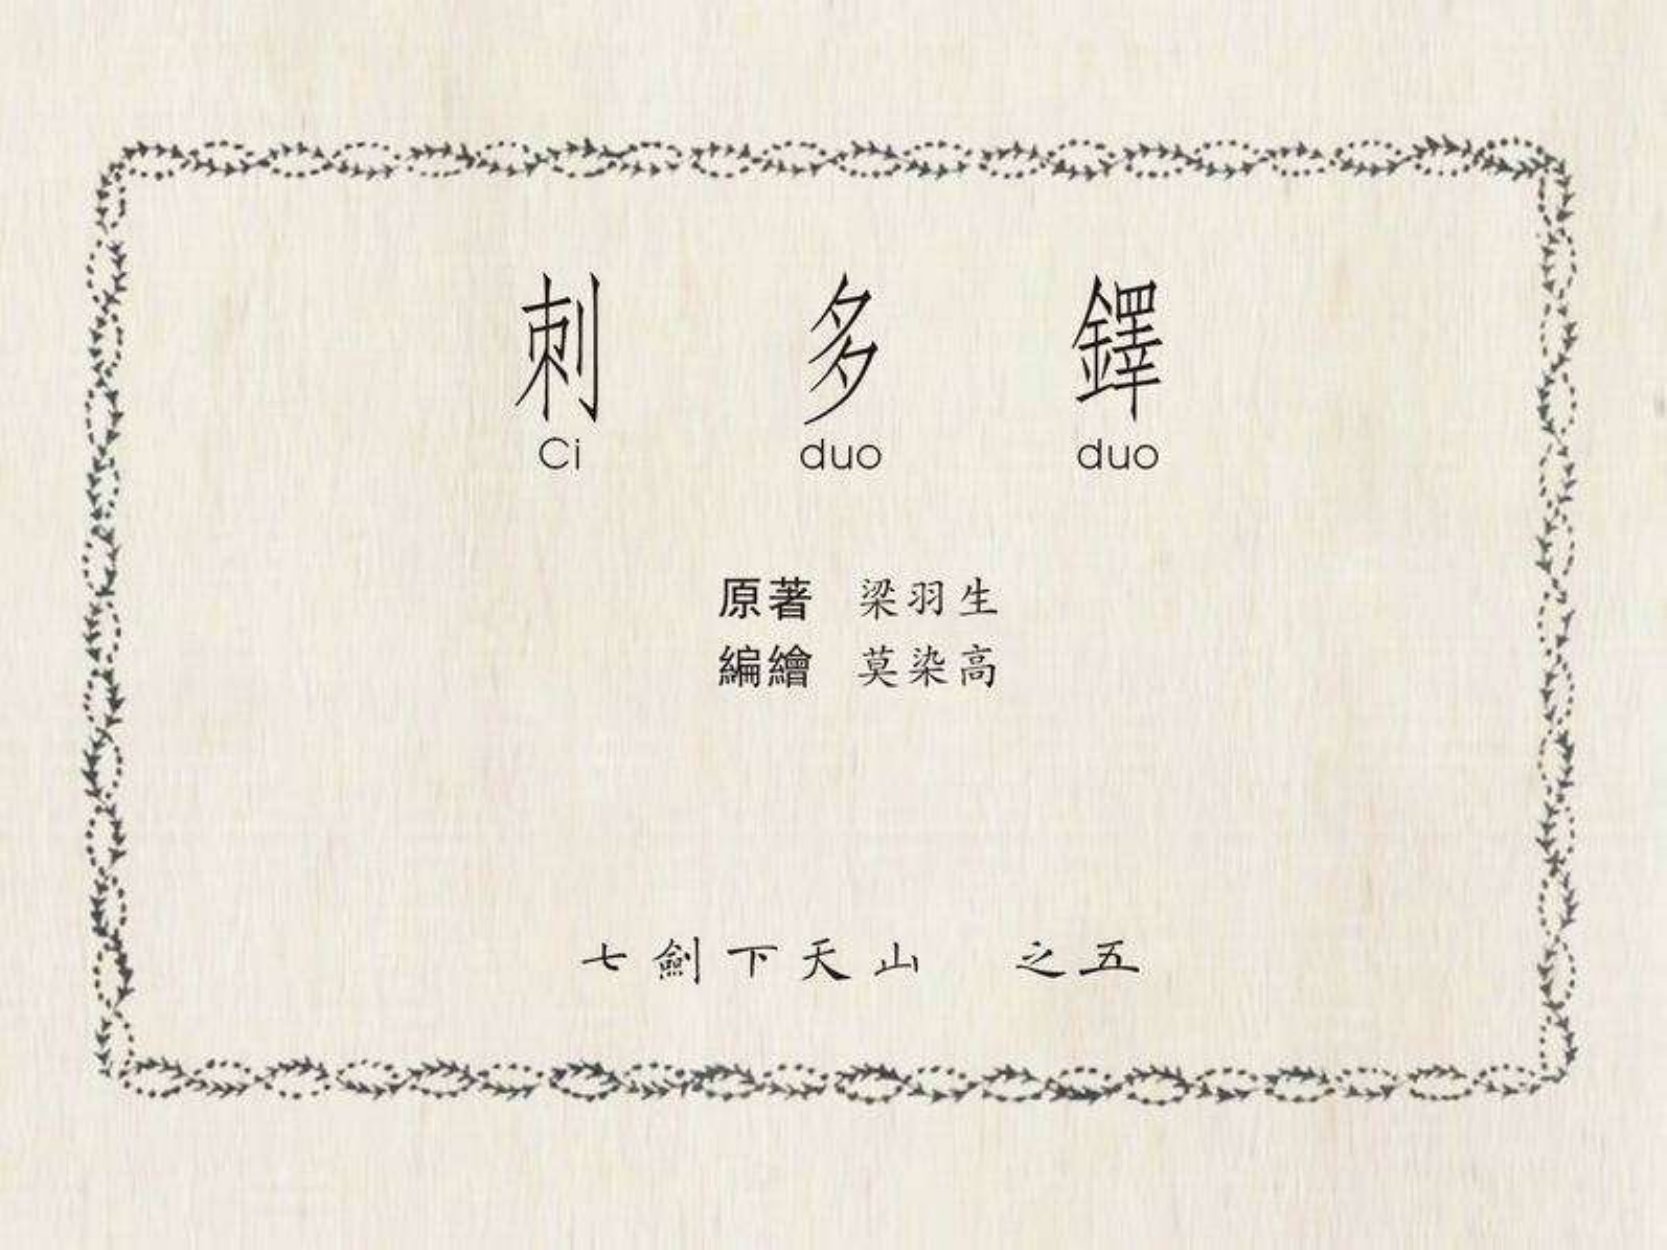 刺 多 鐸
Ci duo duo
原著 梁羽生
編繪 莫染高
七劍下天山 之五